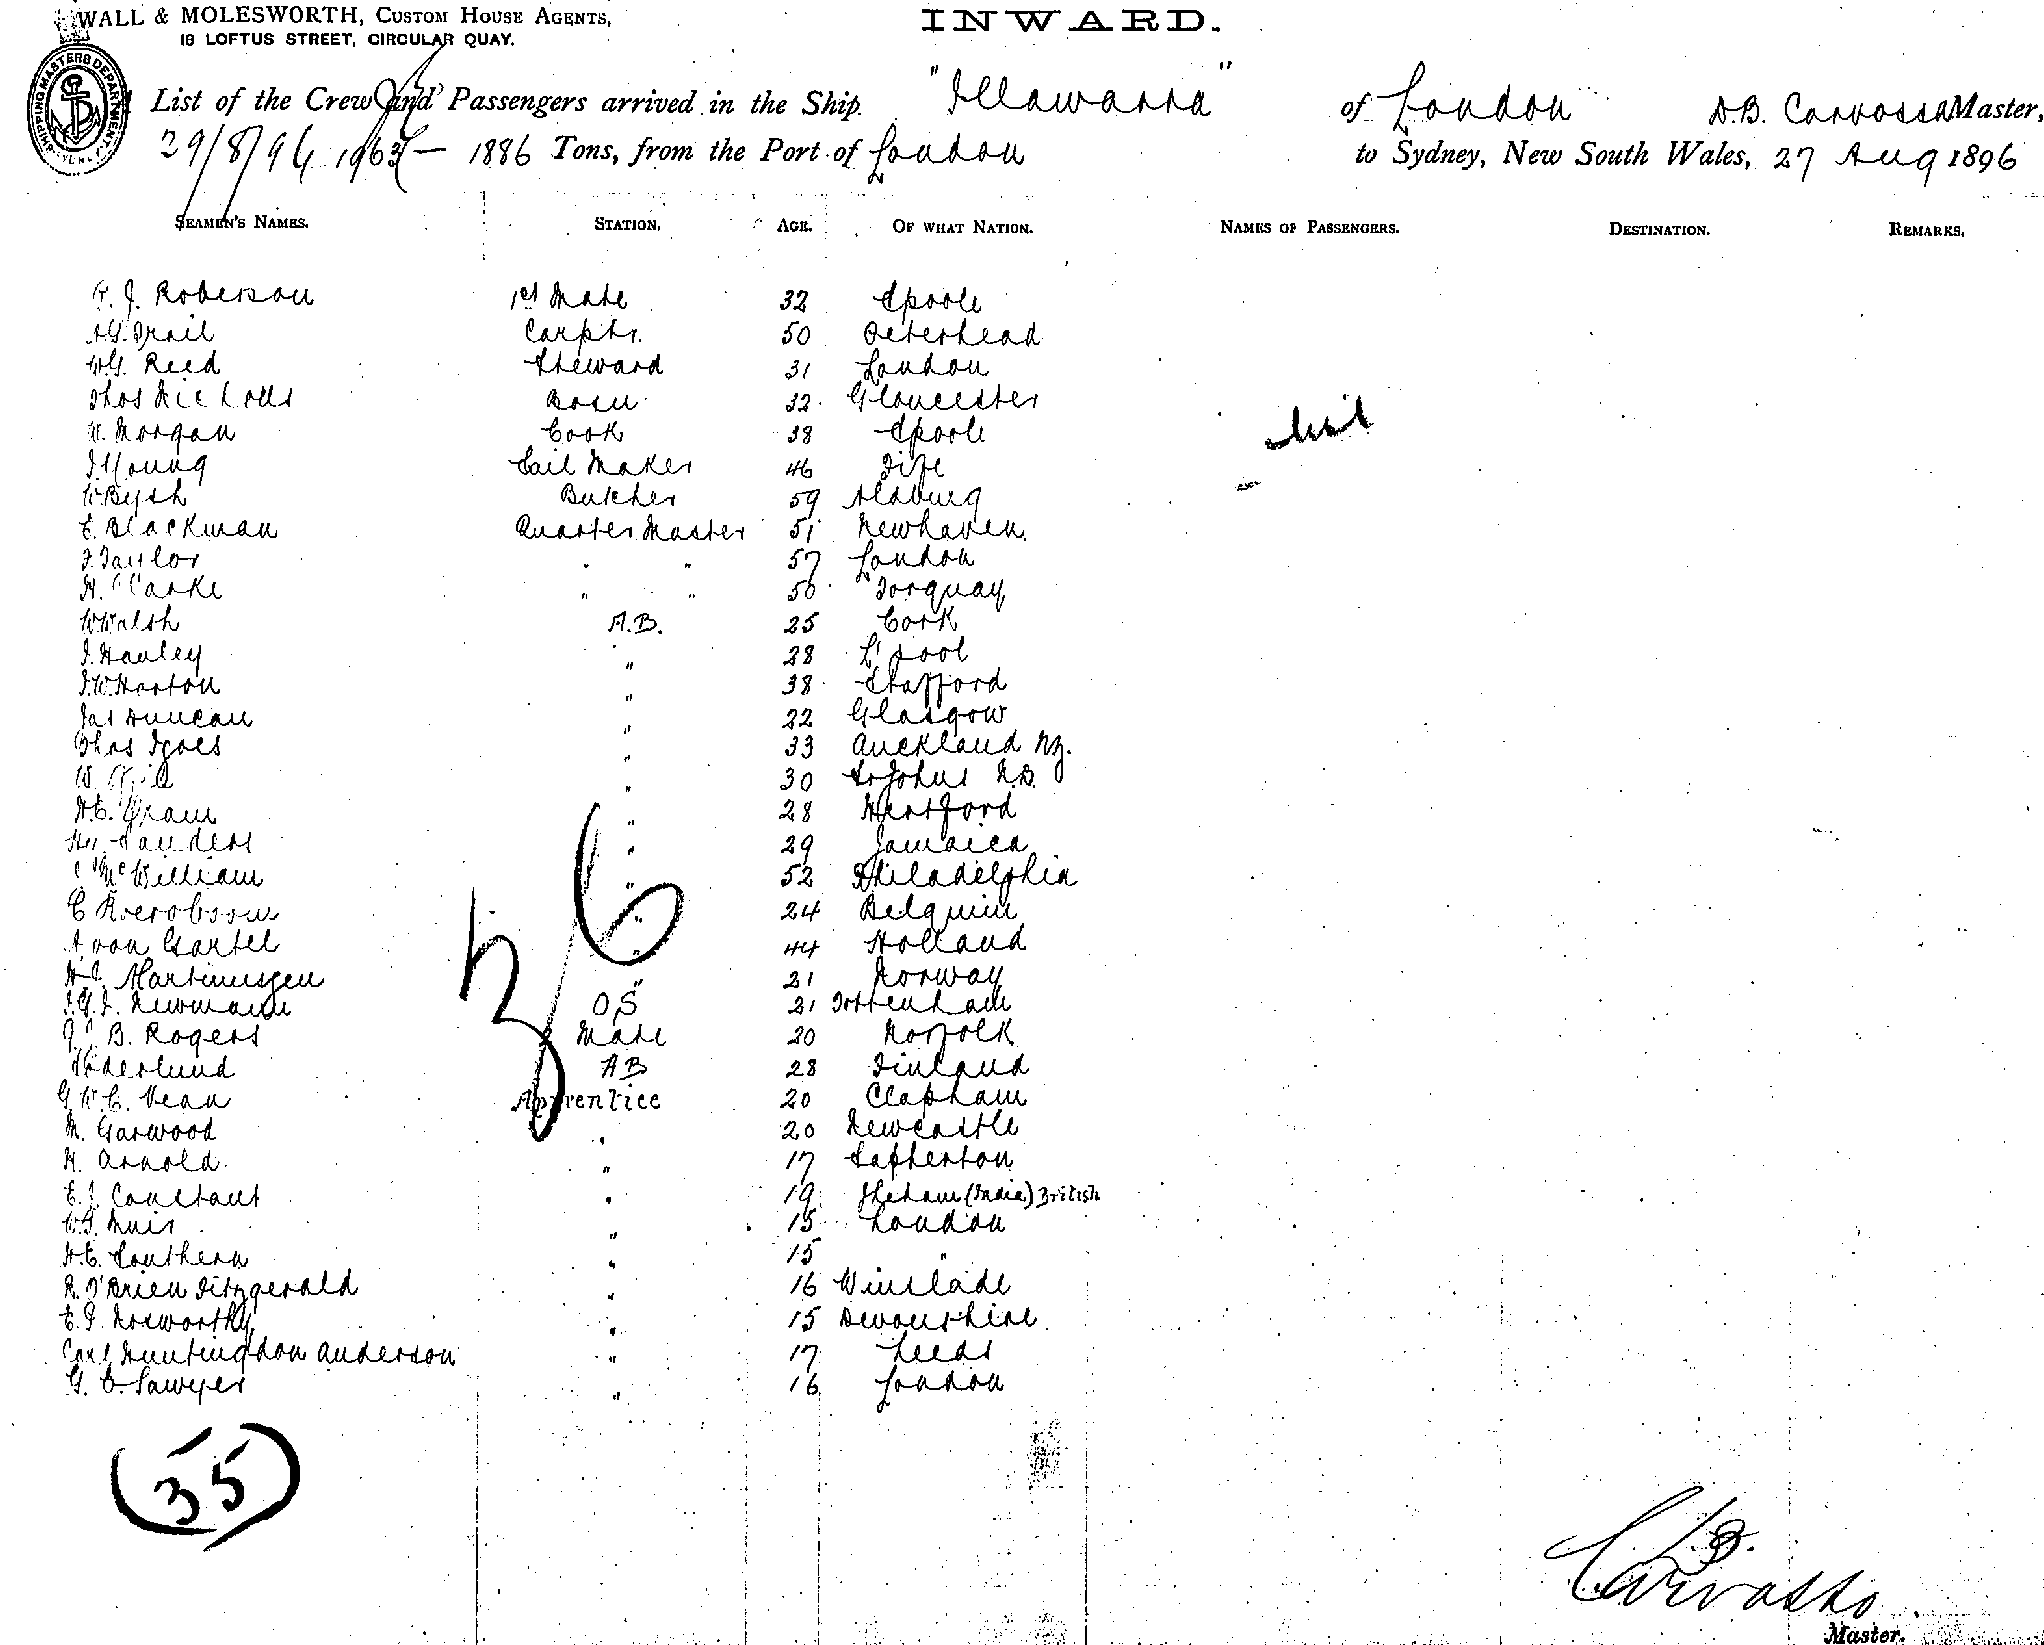 WALL & MOLESWORTH, CUSTOM HOUSE AGENTS,
18 LOFTUS STREET, CIRCULAR QUAY.
INWARD.
SHIPPING MASTERS DEPARTMENT
List of the Crew and Passengers arrived in the Ship. "Illawarra" of London D.B. Carvosso Master,
29/8/96 1963 — 1886 Tons, from the Port of London to Sydney, New South Wales, 27 Aug 1896
SEAMEN'S NAMES. STATION. AGE. OF WHAT NATION. NAMES OF PASSENGERS. DESTINATION. REMARKS.
J. Roberson 1st Mate 32 Spoole
Trail Carptr. 50 Peterhead
W.G. Reed Steward 31 London
Thos Nicholls Bosn 32 Gloucester
W. Morgan Cook 38 Spoole
Nil
J Young Sail Maker 46 Fife
W Bysh Butcher 59 Aldburg
E. Blackman Quarter Master 51 Newhaven
J. Taylor " " 57 London
H. Clarke " " 50 Torquay
W Walsh A.B. 25 Cork
J. Hanley " 28 L'pool
J.W. Horton " 38 Stafford
Jas Duncan " 22 Glasgow
Thos Igoes " 33 Auckland NZ.
W. " 30 St Johns N.B.
H.E. Gram " 28 Hertford
Hy Sanders " 29 Jamaica
McWilliam " 52 Philadelphia
C " 24 Belguim
A von Gartel " 44 Holland
H.J. Martinussen " 21 Norway
J.G.J. Newmann OS 21 Tottenham
B. Rogers 2 Mate 20 Norfolk
Soderlund AB 28 Finland
G.W.C. Vean Apprentice 20 Clapham
M. Garwood " 20 Newcastle
H. Arnold " 17 Eatherton
E.J. Constant " 19 (India) British
W.G. Muir " 15 London
H.E. Southern " 15 "
R. O'Brien Fitzgerald " 16 Winslade
E.J. Nosworthy " 15 Devonshire
Carl Huntingdon Anderson " 17 Leeds
G. E. Sawyer " 16 London
36
35
D.B. Carvosso
Master.